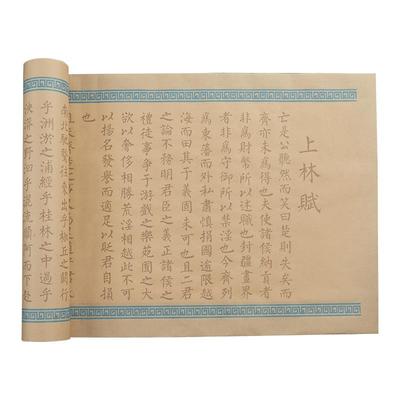 上林賦
亡是公聽然而笑曰楚則失矣而
齊亦未為得也夫使諸侯納貢者
非為財幣所以述職也封疆畫界
者非為守御所以禁淫也今齊列
為東藩而外私肅慎捐國逾限越
海而田其于義固未可也且二君
之論不務明君臣之義正諸侯之
禮徒事爭于游戲之樂苑囿之大
欲以奢侈相勝荒淫相越此不可
以揚名發譽而適足以貶君自損
也
南北馳騖往來出乎椒丘之闕行
乎洲淤之浦經乎桂林之中過乎
泱漭之野汩乎混流順阿而下赴